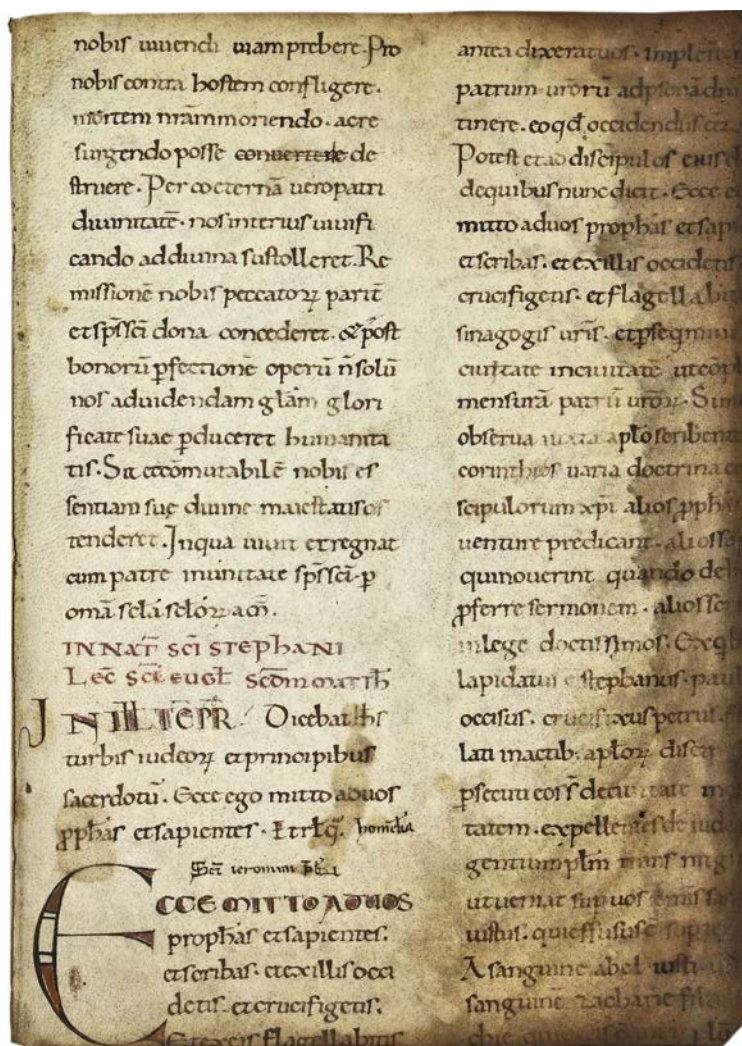 nobis uiuendi uiam prebere. Pro
nobis contra hostem confligere.
mortem nr̄am moriendo. ac re
surgendo posse conuertere de
struere. Per coeternā uero patri
diuinitatē. nos interius uiuifi
cando ad diuina sustolleret. Re
missionē nobis peccatoꝝ parit̄
et sp̄s sc̄i dona concederet. & post
bonorū ꝑfectionē operū n̄ solū
nos ad uidendam gl̄am glori
ficate suae ꝑduceret humanita
tis. S; et incōmutabilē nobis es
sentiam sue diuine maiestatis os
tenderet. In qua uiuit et regnat
cum patre in unitate sp̄s sc̄i. ꝑ
om̄a sc̄la sc̄loꝝ am̄.
IN NAT̄ SC̄I STEPHANI
LEC̄ SC̄I EUGL̄ SCD̄M MATTH̄
IN ILL̄ TĒPR̄. Dicebat ih̄s
turbis iudeoꝝ et principibus
sacerdotū. Ecce ego mitto ad uos
ꝓph̄as et sapientes. Et rl̄q̄. homelia
ECCE MITTO AD UOS
proph̄as et sapientes.
et scribas. et ex illis occi
detis. et crucifigetis.
Et ex eis flagellabitis
antea dixerat uos. implete
patrum ur̄orū ad ꝑsonā dn̄i
tinere. eo qd̄ occidendus
Potest et ad discipulos eius
de quibus nunc dicit. Ecce
mitto ad uos proph̄as et
et scribas. et ex illis occidetis
crucifigetis. et flagellabit
sinagogis ur̄is. et ꝑseqmini
ciuitate in ciuitatē ut
mensurā patrū ur̄oꝝ. Simul
obserua iuxta apl̄o scribente
corinthios uaria doctrina
scipulorum xp̄i alios ꝓph̄as
uenture predicant. alios
qui nouerint quando
ꝓferre sermonem. alios
in lege doctissimos. Ex
lapidatus ē stephanus. paul
occisus. crucifixus petrus.
lati in actib; apl̄oꝝ
ꝑsecuti eos s̄ de ciuitate in
tatem. expellentes de
gentium
ut ueniat sup uos om̄is
iustus. qui effusus ē sup
A sanguine abel iusti
sanguinē zacharie